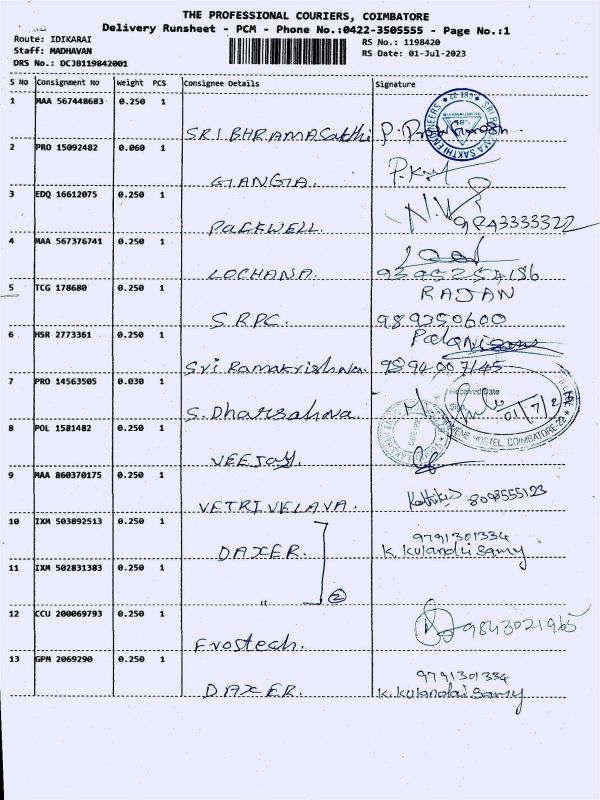 THE PROFESSIONAL COURIERS, COIMBATORE
Delivery Runsheet - PCM - Phone No.:0422-3505555 - Page No.:1
Route: IDIKARAI
Staff: MADHAVAN
DRS No.: DCJB119842001
RS No.: 1198420
RS Date: 01-Jul-2023
S No Consignment No Weight PCS Consignee Details Signature
1 MAA 567448683 0.250 1
SRI BHRAMASakthi
2 PRO 15092482 0.060 1
GIANGIA.
3 EDQ 16612075 0.250 1
PACKWELL. 9843333322
4 MAA 567376741 0.250 1
LOCHANA.
5 TCG 178680 0.250 1 RAJAN
SRPC. 989350600
6 HSR 2773361 0.250 1
Sri Ramakrishna 9894007145
7 PRO 14563505 0.030 1
Received Date
01/7/2
S. Dharsahna.
HOSTEL, COIMBATORE-22
8 POL 1581482 0.250 1
VEEJAY.
9 MAA 860370175 0.250 1
VETRIVELAVA. 8098555123
10 IXM 503892513 0.250 1 9791301334
DAXER. K. Kulandai Samy
11 IXM 502831383 0.250 1
" 2
12 CCU 200069793 0.250 1 9843021965
Frostech.
13 GPM 2069290 0.250 1 9791301334
DAXER. K. Kulandai Samy